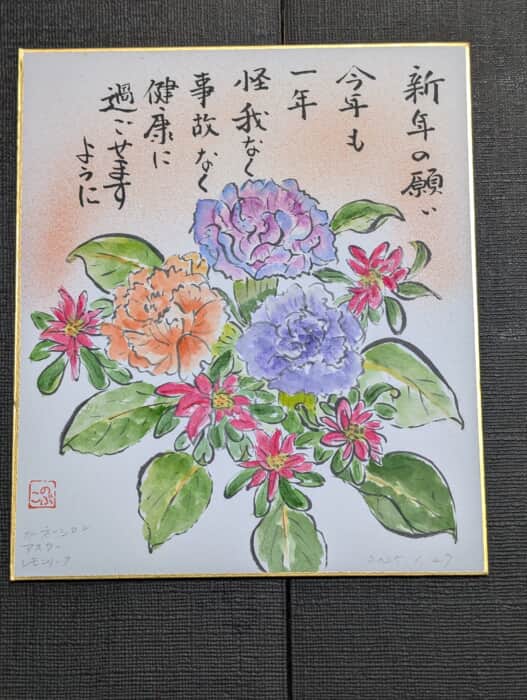 新年の願い
今年も
一年
怪我なく
事故なく
健康に
過ごせます
ように
カーネーション
アスター
レモンリーフ
2025.1.27